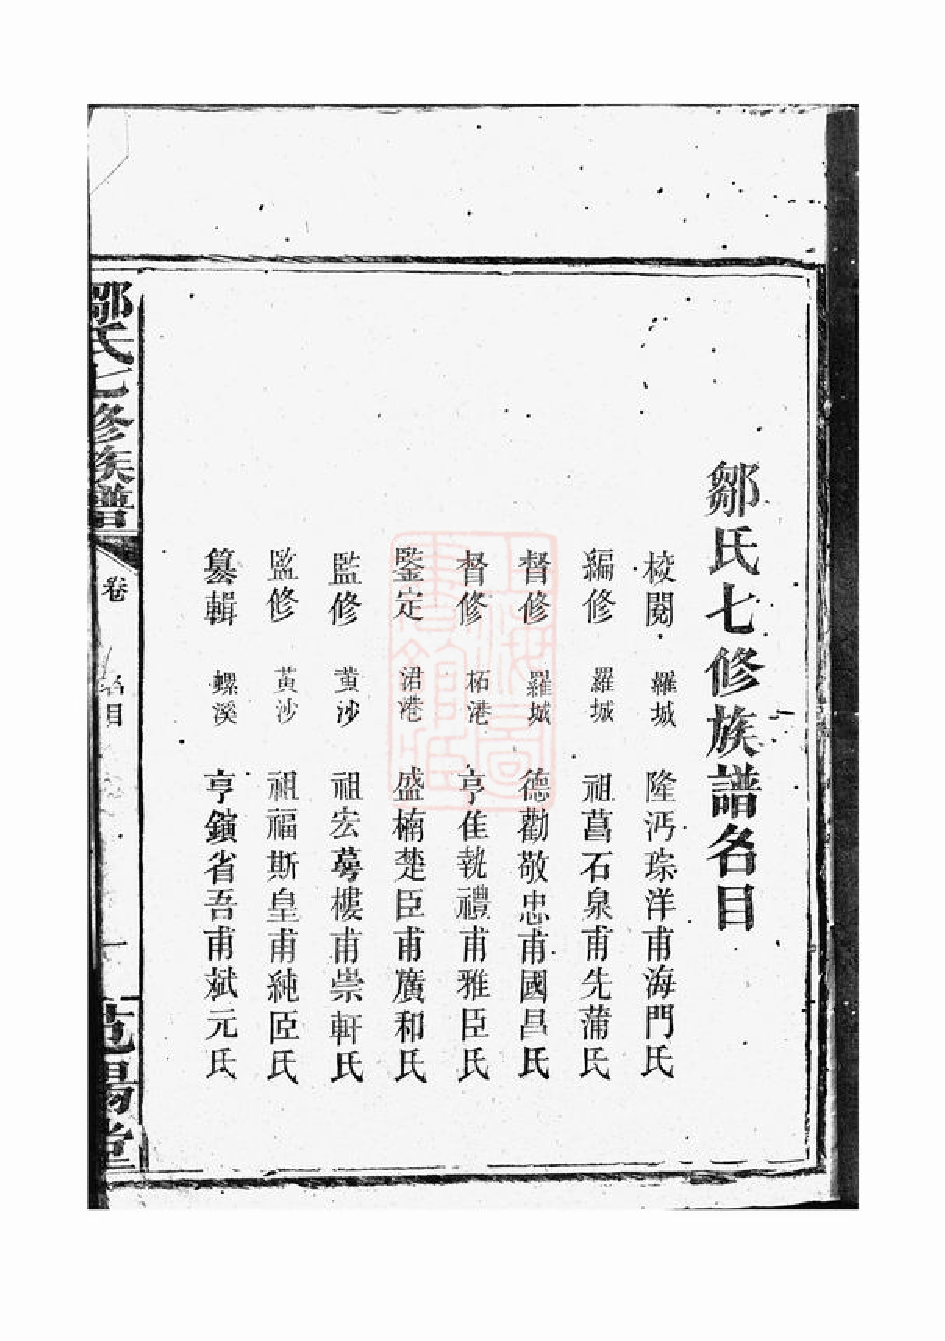 鄒氏七修族譜名目
校閱 羅城 隆沔琮洋甫海門氏
編修 羅城 祖菖石泉甫先蒲氏
督修 羅城 德勸敬忠甫國昌氏
督修 柘港 亨隹執禮甫雅臣氏
鑒定 涒港 盛楠楚臣甫廣和氏
監修 黃沙 祖宏蕚樓甫崇軒氏
監修 黃沙 祖福斯皇甫純臣氏
纂輯 螺溪 亨鎮省吾甫斌元氏
鄒氏七修族譜 卷 名目 一 范陽堂